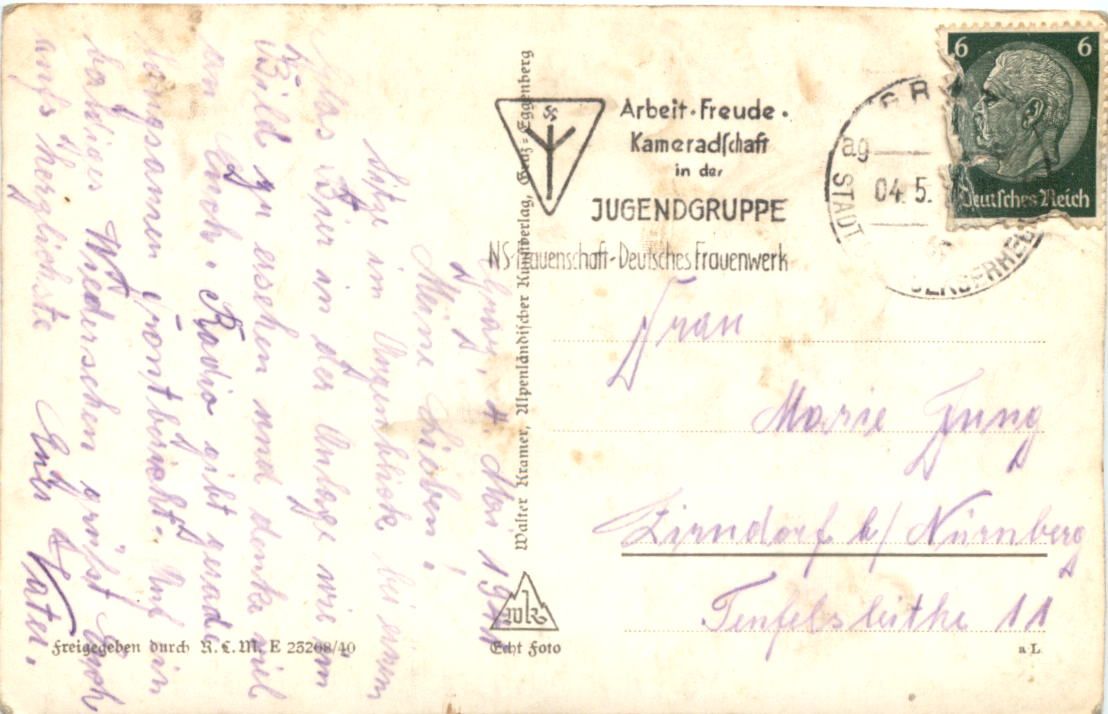 Graz, 4. Mai 1941
Meine Lieben!
Sitze im Augenblick bei einem
Glas Bier in der Anlage wie im
Bild zu ersehen und denke viel
an Euch. Radio gibt gerade
Frontbericht. Auf ein
baldiges Wiedersehen grüßt Euch
aufs herzlichste Euer Vater.
Walter Kramer, Alpenländischer Kunstverlag, Graz-Eggenberg
wk
Echt Foto
Freigegeben durch R.L.M. E 23208/40
Arbeit · Freude ·
Kameradschaft
in der
JUGENDGRUPPE
NS-Frauenschaft-Deutsches Frauenwerk
GR
ag
04. 5.
STADT
6 6
Deutsches Reich
Frau
Marie Jung
Zirndorf b/ Nürnberg
Teufelsleithe 11
a L